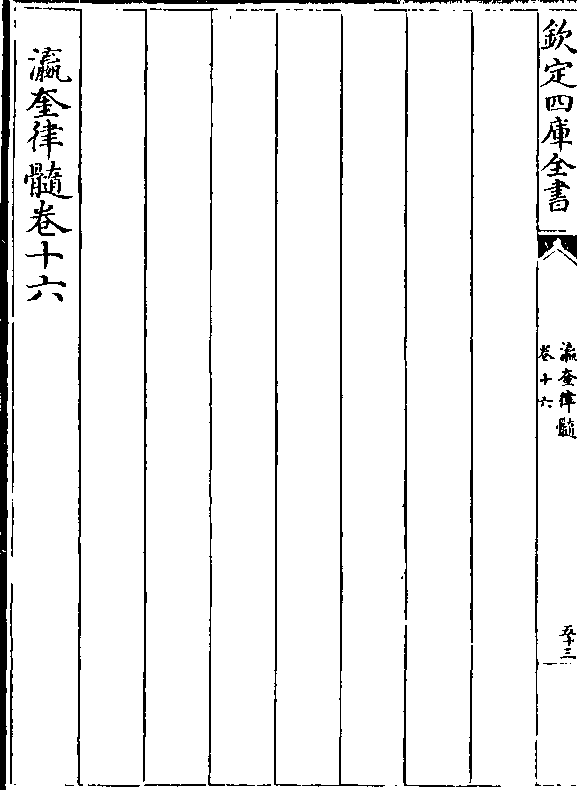 欽定四庫全書
瀛奎律髓
卷十六
五十三
瀛奎律髓卷十六